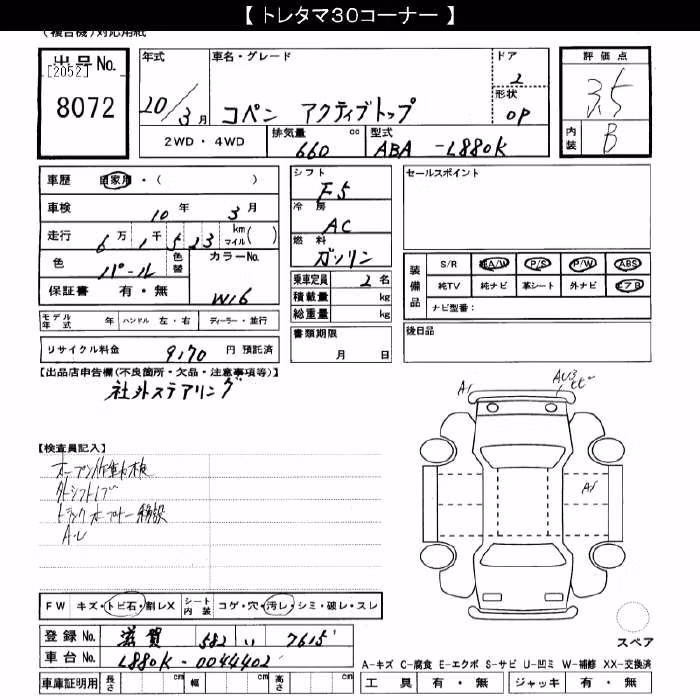 【 トレタマ30コーナー 】
(複合機)対応用紙
出品No. 年式 車名・グレード ドア 評価点
[2052] 2 3.5
8072 20/3月 コペン アクティブトップ 形状 OP
2WD・4WD 排気量 cc 型式 内装 B
660 ABA -L880K
車歴 自家用・( ) シフト F5 セールスポイント
車検 10年 3月 冷房 AC
走行 6万 1千 523 km マイル( ) 燃料 ガソリン
色 パール 色替 カラーNo. W16
保証書 有・無
乗車定員 2名
積載量 kg
総重量 kg
装備品 S/R 純A/W P/S P/W ABS
純TV 純ナビ 革シート 外ナビ エアB
ナビ型番:
モデル年式 年 ハンドル 左・右 ディーラー・並行
書類期限 月 日
後日品
リサイクル料金 9,170 円 預託済
【出品店申告欄(不良箇所・欠品・注意事項等)】
社外ステアリング
A1 AU3
A1
【検査員記入】
オープン作動未検
外シフトノブ
A・U
FW キズ・トビ石・割レX シート内装 コゲ・穴・汚レ・シミ・破レ・スレ
登録No. 滋賀 582 い 7615
車台No. L880K-0044402
スペア
A-キズ C-腐食 E-エクボ S-サビ U-凹ミ W-補修 XX-交換済
車庫証明用 長さ cm 幅 cm 高さ cm 工具 有・無 ジャッキ 有・無